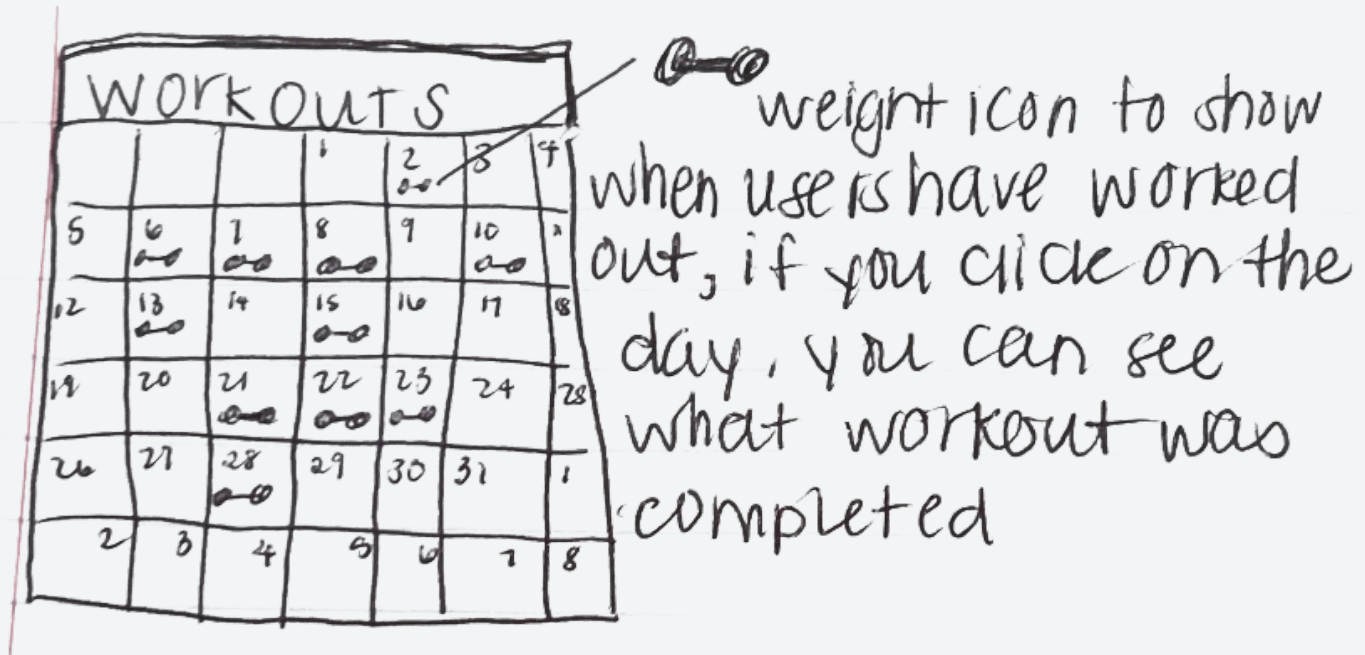 WORKOUTS
1 2 3 4
5 6 7 8 9 10
12 13 14 15 16 17 18
19 20 21 22 23 24 25
26 27 28 29 30 31 1
2 3 4 5 6 7 8
weight icon to show
when users have worked
out, if you click on the
day, you can see
what workout was
completed